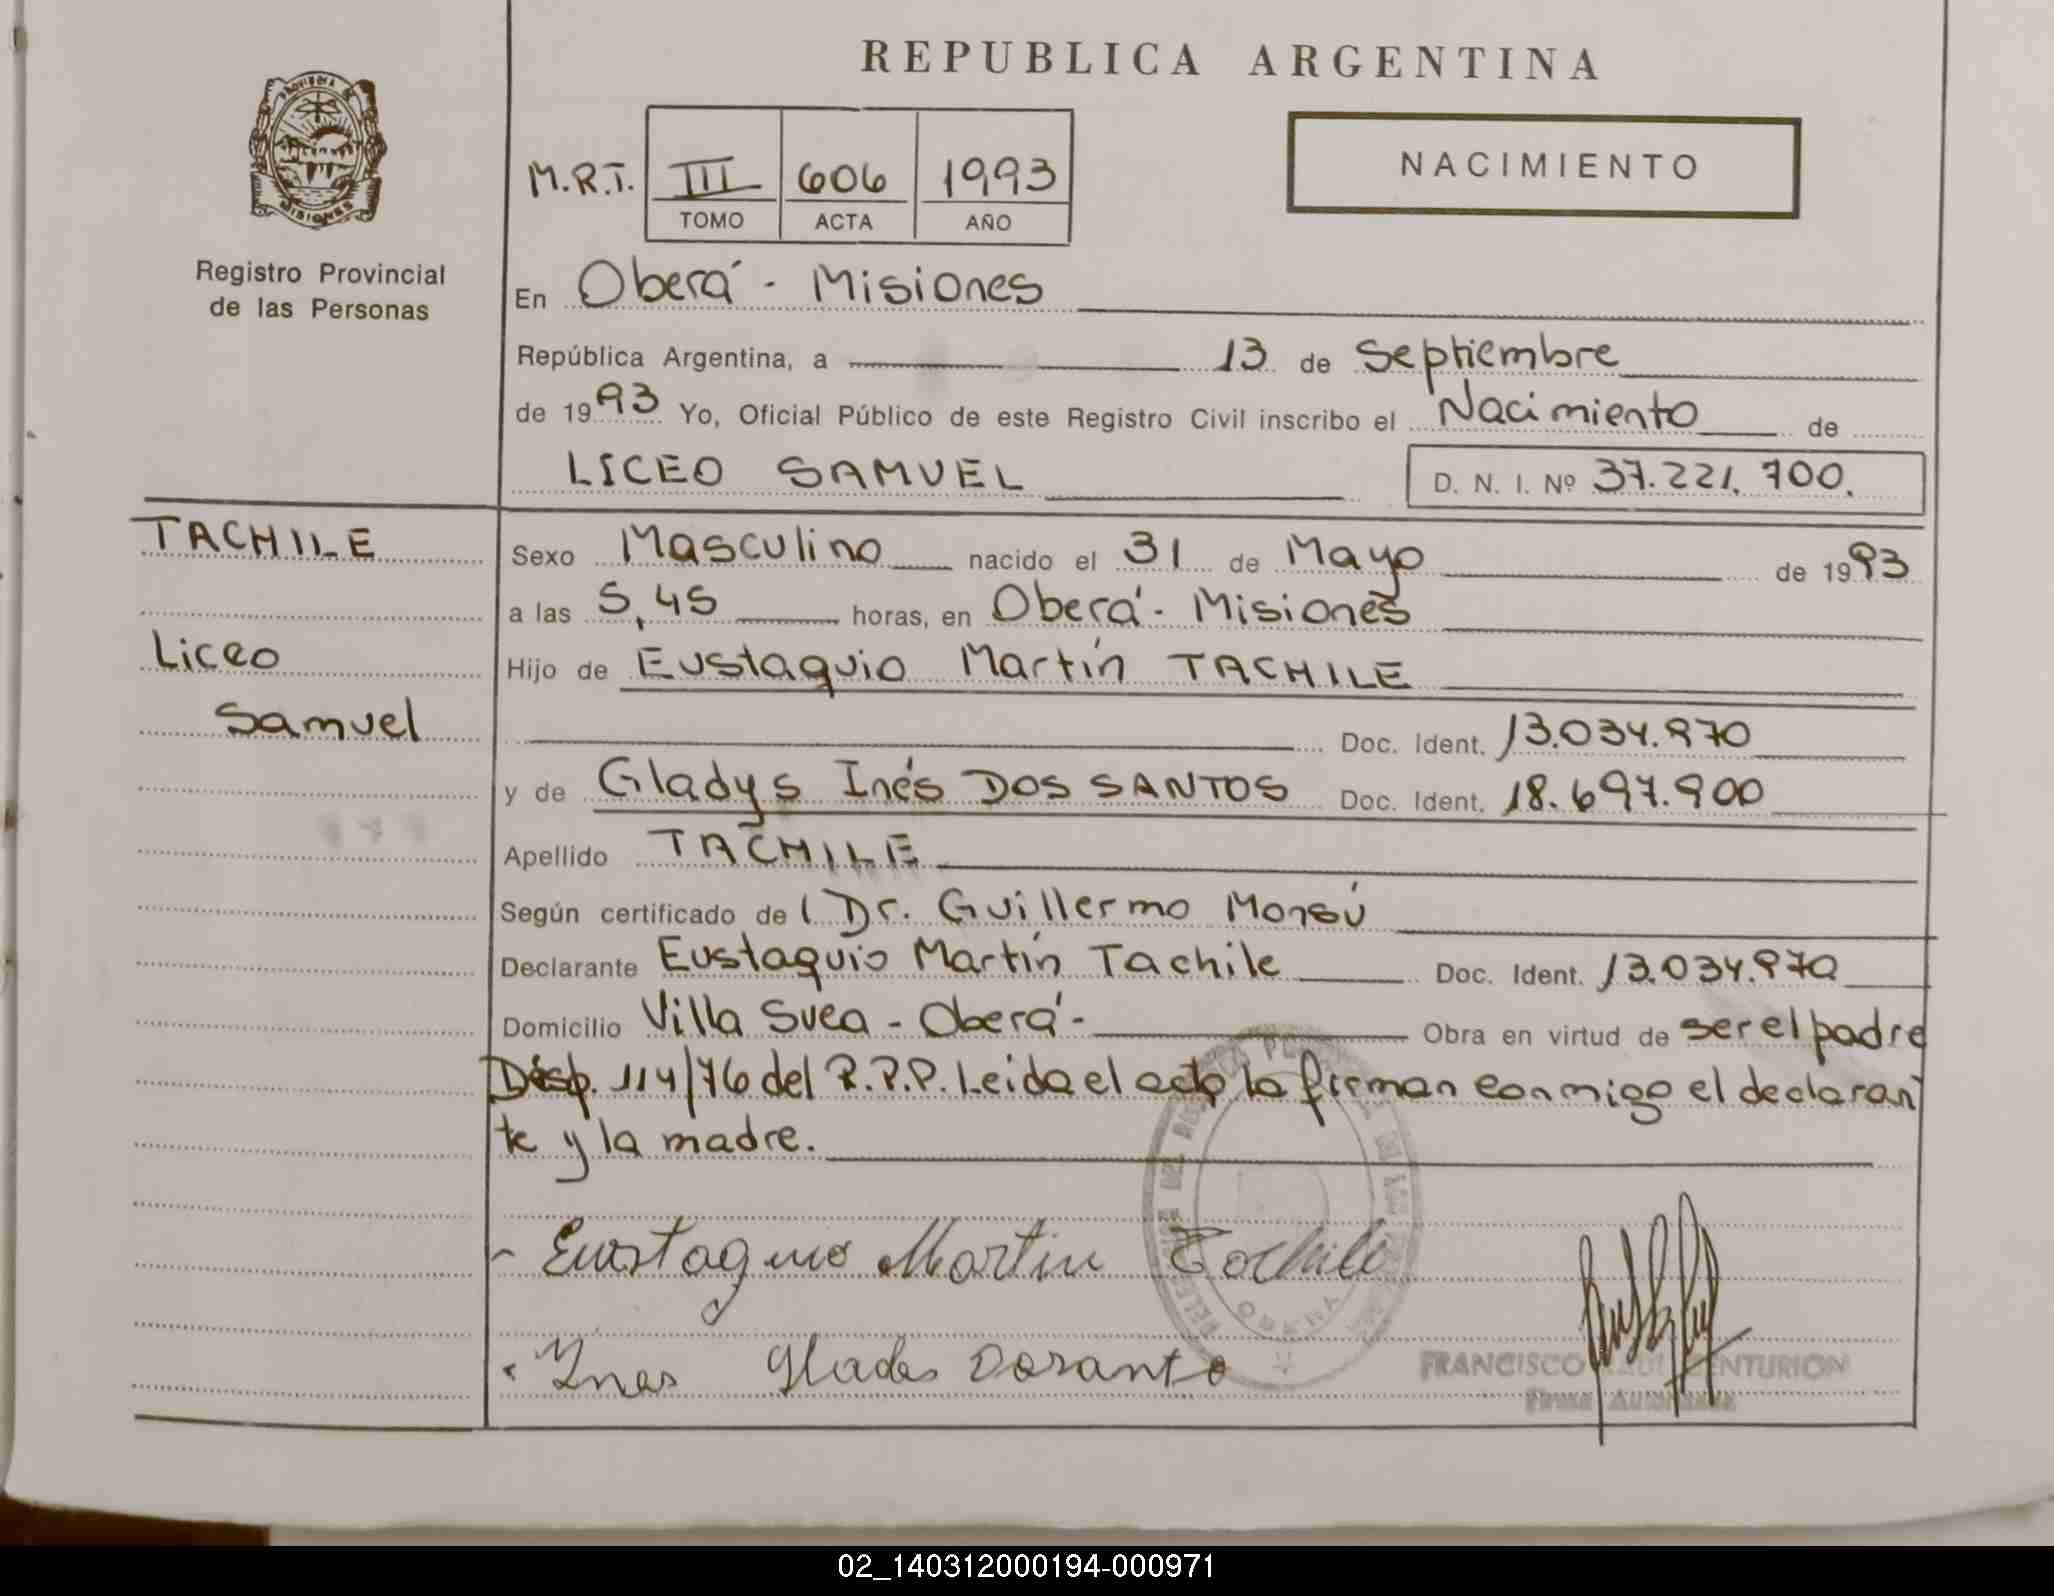 REPUBLICA ARGENTINA
PROVINCIA DE MISIONES
Registro Provincial
de las Personas
M.R.T. III 606 1993
TOMO ACTA AÑO
NACIMIENTO
En Oberá - Misiones
República Argentina, a 13 de Septiembre
de 1993 Yo, Oficial Público de este Registro Civil inscribo el Nacimiento de
LICEO SAMUEL D. N. I. Nº 37.221.700.
TACHILE
Liceo
Samuel
Sexo Masculino nacido el 31 de Mayo de 1993
a las 5,45 horas, en Oberá - Misiones
Hijo de Eustaquio Martín TACHILE
Doc. Ident. 13.034.970
y de Gladys Inés DOS SANTOS Doc. Ident. 18.697.900
Apellido TACHILE
Según certificado de l Dr. Guillermo Monsú
Declarante Eustaquio Martín Tachile Doc. Ident. 13.034.970
Domicilio Villa Svea - Oberá - Obra en virtud de ser el padre
Disp. 114/76 del R.P.P. Leida el acta la firman conmigo el declaran
te y la madre.
Eustaquio Martin Tachile
Ynes Glades Dosanto
FRANCISCO RAUL CENTURION
Firma Autorizada
02_140312000194-000971